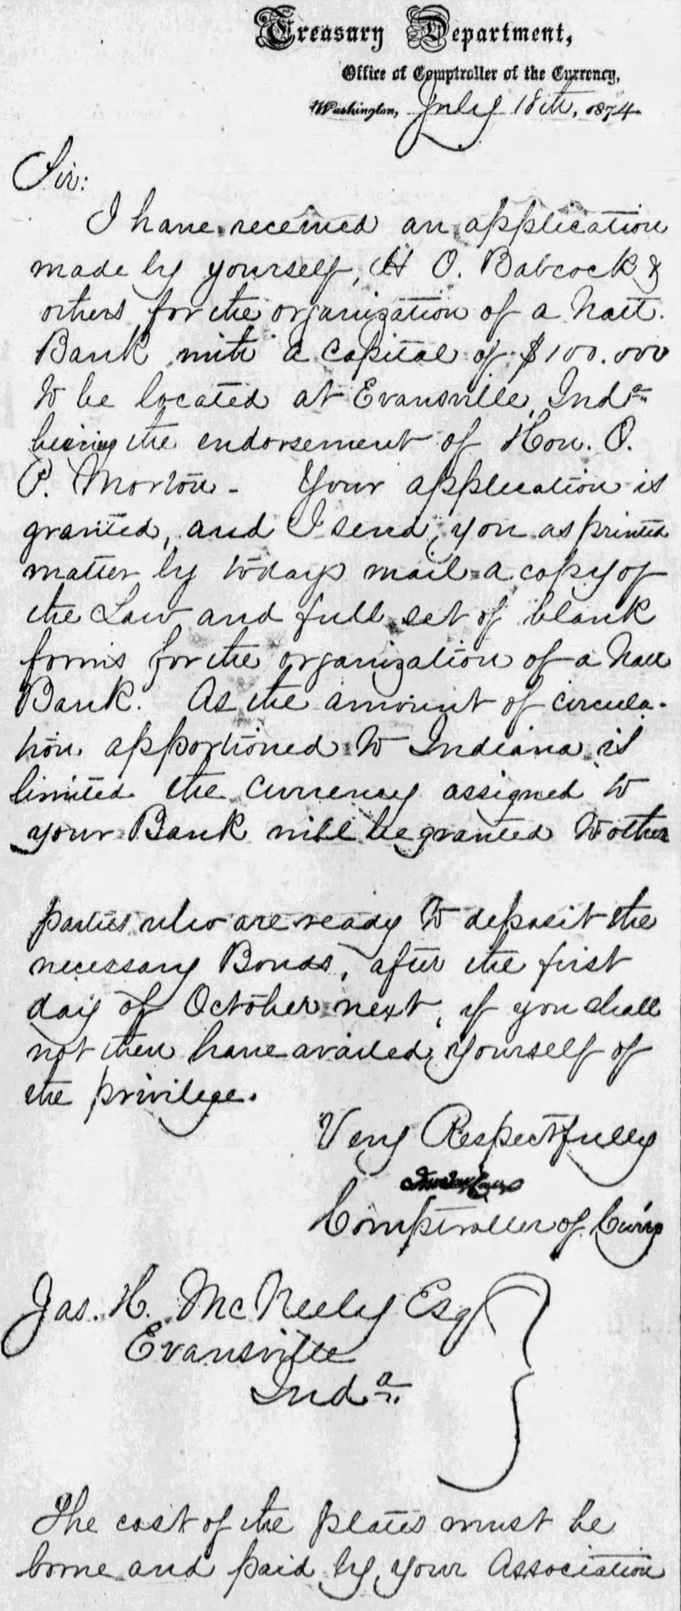 Treasury Department,
Office of Comptroller of the Currency,
Washington, July 18th, 1874
Sir:
I have received an application
made by yourself, H O. Babcock &
others, for the organization of a Natl.
Bank with a capital of $100.000
to be located at Evansville, Inda
the endorsement of Hon. O.
P. Morton - Your application is
granted, and I send you as printed
matter by todays mail a copy of
the Law and full set of blank
forms for the organization of a Natl
Bank. As the amount of circula-
tion apportioned to Indiana is
limited the currency assigned to
your Bank will be granted to other
parties who are ready to deposit the
necessary Bonds, after the first
day of October next, if you shall
not then have availed yourself of
the privilege.
Very Respectfully
Comptroller of Curcy
Jas. H. McNeely Esq
Evansville
Inda
The cost of the plates must be
borne and paid by your Association